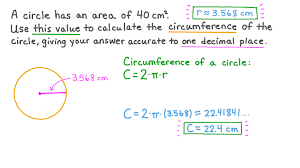 A circle has an area of 40 cm². r ≈ 3.568 cm
Use this value to calculate the circumference of the
circle, giving your answer accurate to one decimal place.
Circumference of a circle:
C = 2·π·r
3.568 cm
C = 2·π·(3.568) = 22.41841...
C = 22.4 cm